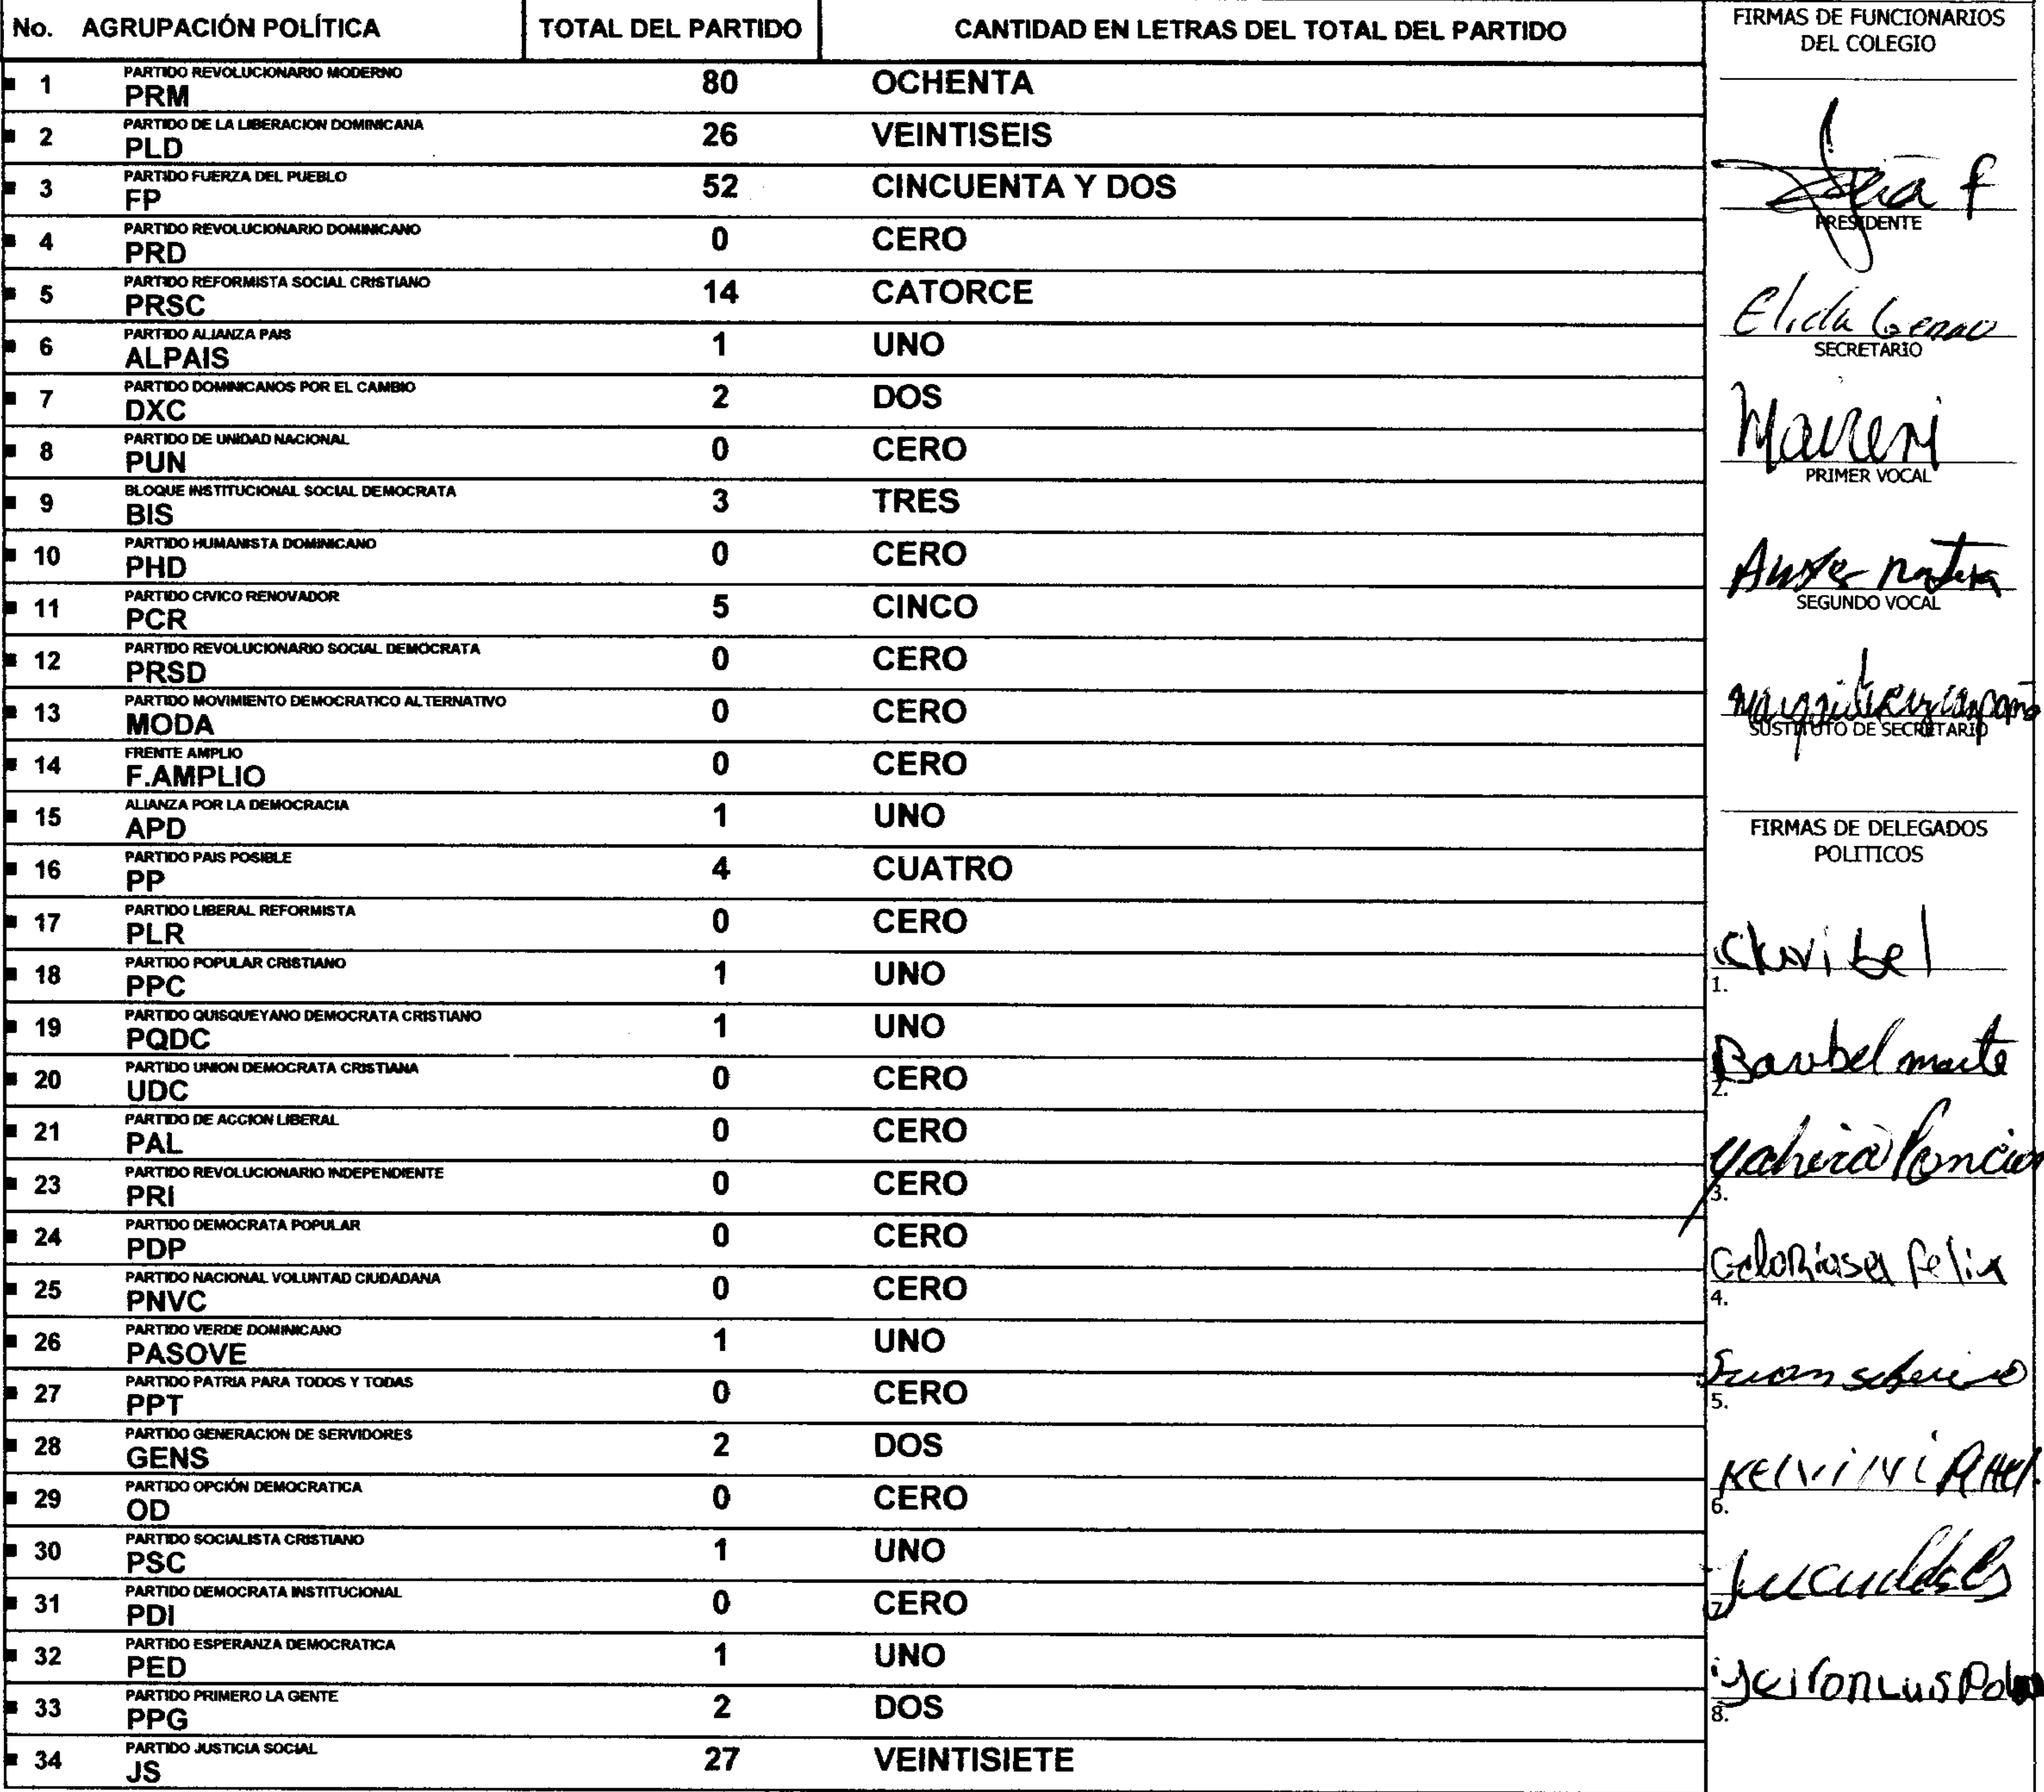 No. AGRUPACIÓN POLÍTICA TOTAL DEL PARTIDO CANTIDAD EN LETRAS DEL TOTAL DEL PARTIDO
PARTIDO REVOLUCIONARIO MODERNO
1 PRM 80 OCHENTA
PARTIDO DE LA LIBERACION DOMINICANA
2 PLD 26 VEINTISEIS
PARTIDO FUERZA DEL PUEBLO
3 FP 52 CINCUENTA Y DOS
PARTIDO REVOLUCIONARIO DOMINICANO
4 PRD 0 CERO
PARTIDO REFORMISTA SOCIAL CRISTIANO
5 PRSC 14 CATORCE
PARTIDO ALIANZA PAIS
6 ALPAIS 1 UNO
PARTIDO DOMINICANOS POR EL CAMBIO
7 DXC 2 DOS
PARTIDO DE UNIDAD NACIONAL
8 PUN 0 CERO
BLOQUE INSTITUCIONAL SOCIAL DEMOCRATA
9 BIS 3 TRES
PARTIDO HUMANISTA DOMINICANO
10 PHD 0 CERO
PARTIDO CIVICO RENOVADOR
11 PCR 5 CINCO
PARTIDO REVOLUCIONARIO SOCIAL DEMOCRATA
12 PRSD 0 CERO
PARTIDO MOVIMIENTO DEMOCRATICO ALTERNATIVO
13 MODA 0 CERO
FRENTE AMPLIO
14 F.AMPLIO 0 CERO
ALIANZA POR LA DEMOCRACIA
15 APD 1 UNO
PARTIDO PAIS POSIBLE
16 PP 4 CUATRO
PARTIDO LIBERAL REFORMISTA
17 PLR 0 CERO
PARTIDO POPULAR CRISTIANO
18 PPC 1 UNO
PARTIDO QUISQUEYANO DEMOCRATA CRISTIANO
19 PQDC 1 UNO
PARTIDO UNION DEMOCRATA CRISTIANA
20 UDC 0 CERO
PARTIDO DE ACCION LIBERAL
21 PAL 0 CERO
PARTIDO REVOLUCIONARIO INDEPENDIENTE
23 PRI 0 CERO
PARTIDO DEMOCRATA POPULAR
24 PDP 0 CERO
PARTIDO NACIONAL VOLUNTAD CIUDADANA
25 PNVC 0 CERO
PARTIDO VERDE DOMINICANO
26 PASOVE 1 UNO
PARTIDO PATRIA PARA TODOS Y TODAS
27 PPT 0 CERO
PARTIDO GENERACION DE SERVIDORES
28 GENS 2 DOS
PARTIDO OPCIÓN DEMOCRATICA
29 OD 0 CERO
PARTIDO SOCIALISTA CRISTIANO
30 PSC 1 UNO
PARTIDO DEMOCRATA INSTITUCIONAL
31 PDI 0 CERO
PARTIDO ESPERANZA DEMOCRATICA
32 PED 1 UNO
PARTIDO PRIMERO LA GENTE
33 PPG 2 DOS
PARTIDO JUSTICIA SOCIAL
34 JS 27 VEINTISIETE
FIRMAS DE FUNCIONARIOS
DEL COLEGIO
PRESIDENTE
Elida
SECRETARIO
Maireni
PRIMER VOCAL
SEGUNDO VOCAL
SUSTITUTO DE SECRETARIO
FIRMAS DE DELEGADOS
POLITICOS
1.
2.
3.
Felix
4.
Juan
5.
6.
7.
Luis
8.